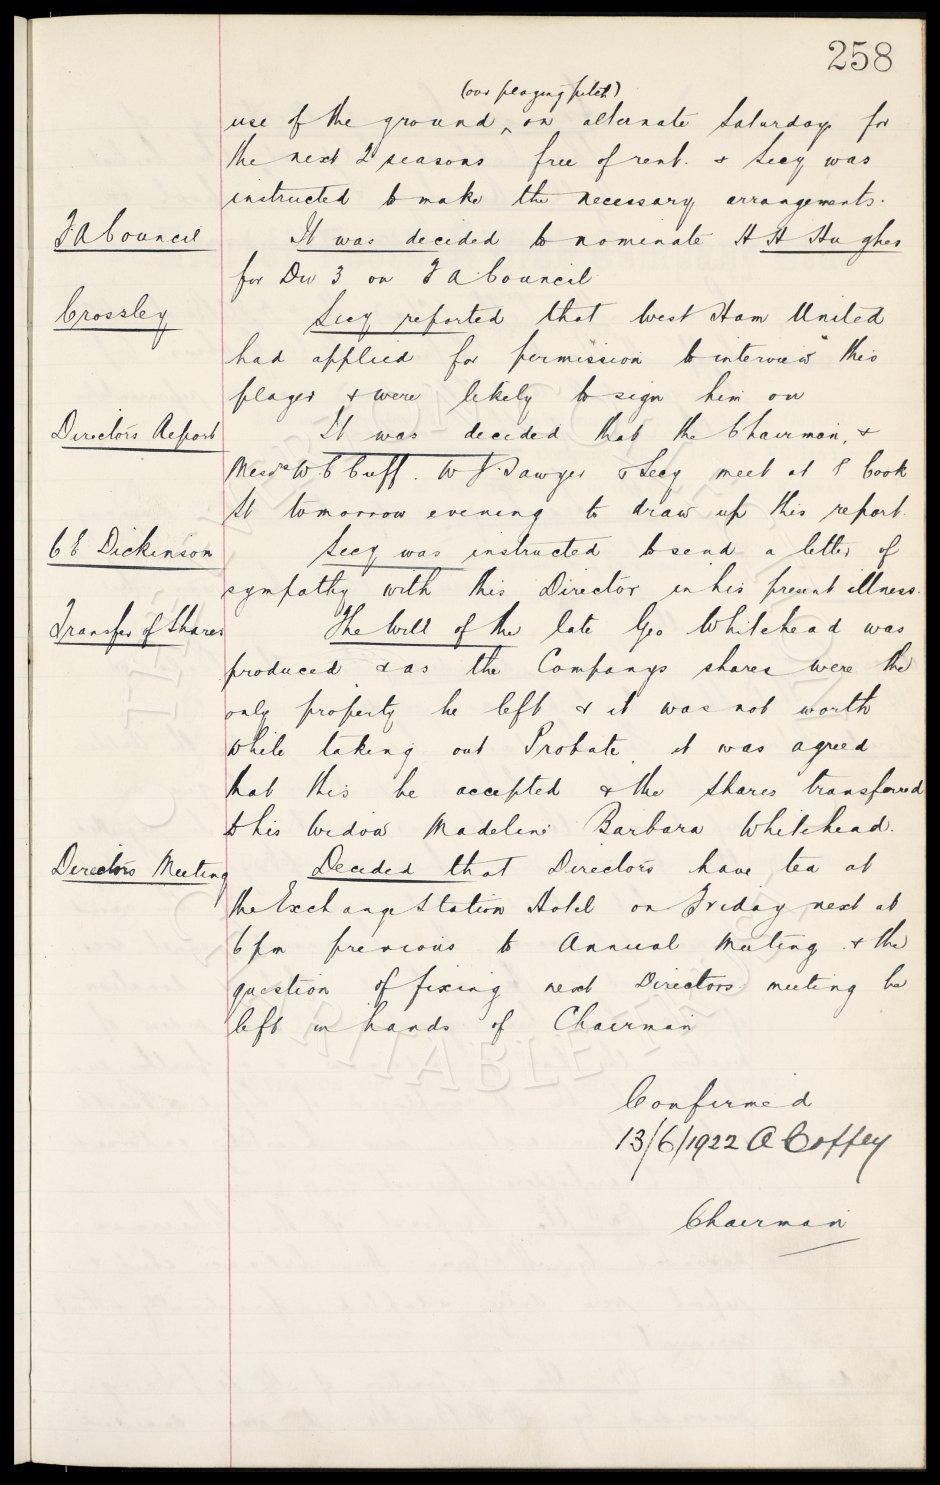 258
(our playing pitch)
use of the ground ^ on alternate Saturdays for
the next 2 seasons free of rent. & Secy was
instructed to make the necessary arrangements.
F A Council
It was decided to nominate H H Hughes
for Div 3 on F A Council
Crossley
Secy reported that West Ham United
had applied for permission to "interview" this
player & were likely to sign him on
Directors Report
It was decided that the Chairman, &
Messrs W. C Cuff. W J. Sawyer & Secy meet at 8 Cook
St tomorrow evening to draw up this report.
C E Dickinson
Secy was instructed to send a letter of
sympathy with this Director in his present illness.
Transfer of Shares
The Will of the late Geo Whitehead was
produced & as the Companys shares were the
only property he left & it was not worth
while taking out Probate, it was agreed
that this be accepted & the shares transferred
to his widow Madeline Barbara Whitehead.
Directors Meeting
Decided that Directors have tea at
the Exchange Station Hotel on Friday next at
6 pm previous to Annual Meeting & the
question of fixing next Directors meeting be
left in hands of Chairman
Confirmed
13/6/1922 A Coffey
Chairman